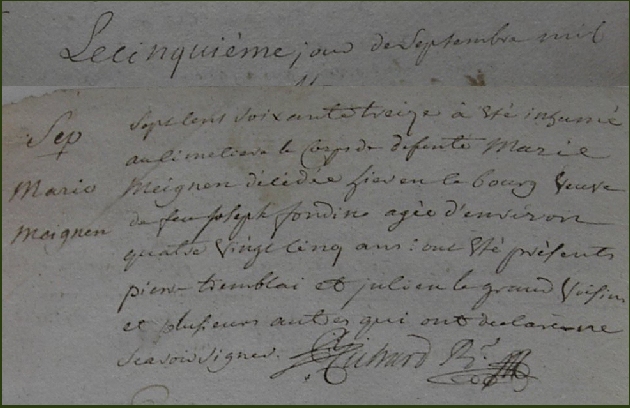 Le cinquiéme jour de Septembre mil
Sep
Marie
Meignen
Sept Cens Soixante treize à été inhumé
au Cimetiere le Corps de defente Marie
Meignen décédée hier en le bourg veuve
de feu Joseph fondino agée d'environ
quatre vingt Cinq ans : ont été présents
pierre tremblai et julien le grand voisins
et plusieurs autres qui ont declaré ne
Scavoir Signer.